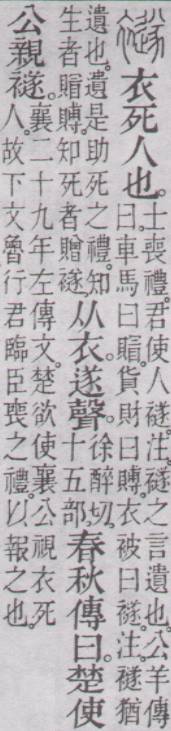 襚 衣死人也。士喪禮。君使人襚。注。襚之言遺也。公羊傳
曰。車馬曰賵。貨財曰賻。衣被曰襚。注。襚猶
遺也。遺是助死之禮。知
生者賵賻。知死者贈襚。从衣。遂聲。徐醉切。
十五部。春秋傳曰。楚使
公親襚。襄二十九年左傳文。楚欲使襄公視衣死
人。故下文魯行君臨臣喪之禮。以報之也。